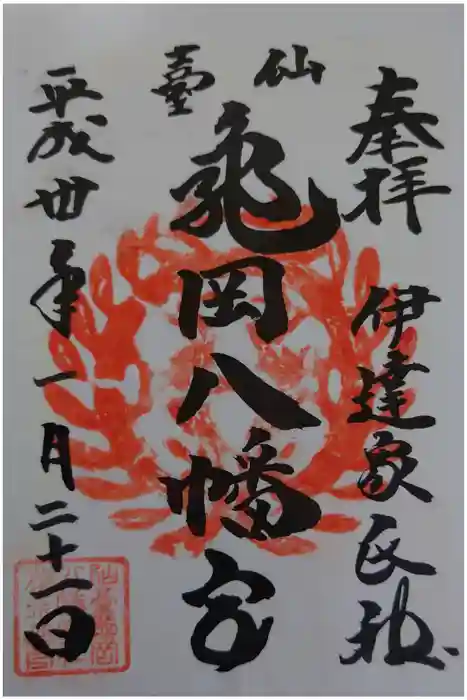 奉拝　伊達家氏神
仙臺
亀岡八幡宮
平成卅年一月二十一日